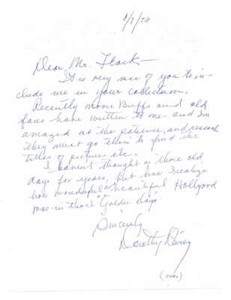 Dear Mr. Flack -
It is very nice of you to in-
clude me in your collection.
Recently movie buffs and old
fans have written to me - and I'm
amazed at the patience, and research
they must go thru to find the
titles of pictures etc.
I haven't thought of those old
days for years, but now I realize
how wonderful + beautiful Hollywood
was - in those "Golden days"
Sincerely
Dorothy